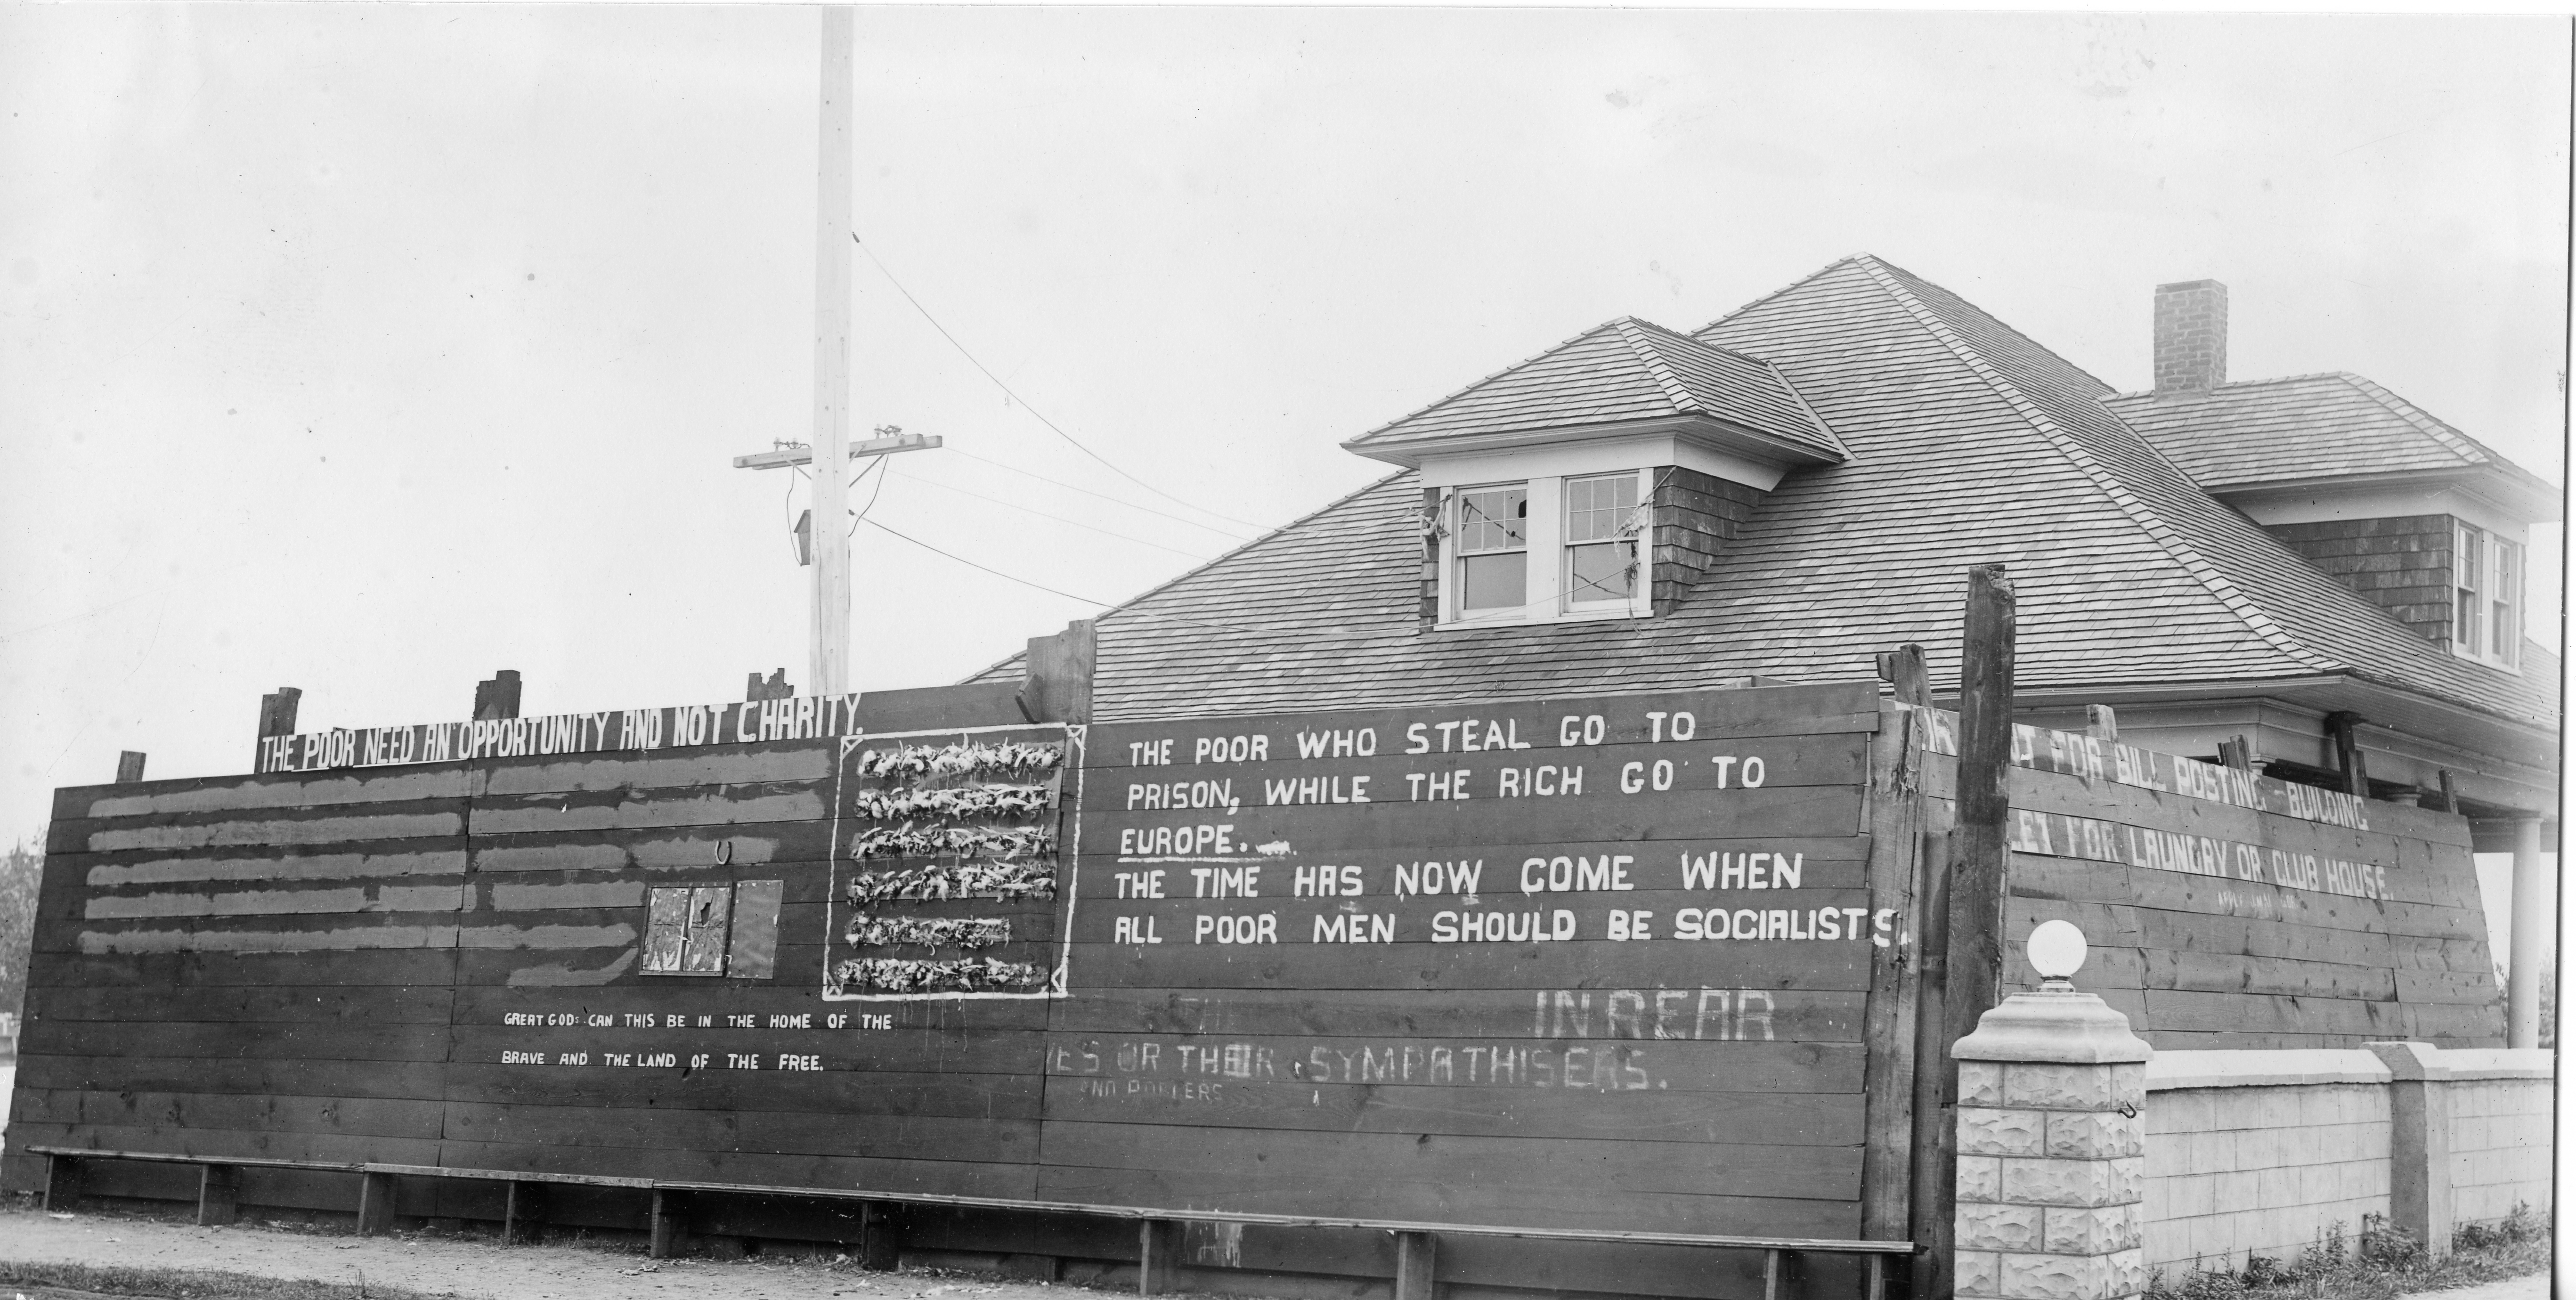 THE POOR NEED AN OPPORTUNITY AND NOT CHARITY.
THE POOR WHO STEAL GO TO
PRISON, WHILE THE RICH GO TO
EUROPE.
THE TIME HAS NOW COME WHEN
ALL POOR MEN SHOULD BE SOCIALISTS.
GREAT GODS CAN THIS BE IN THE HOME OF THE
BRAVE AND THE LAND OF THE FREE.
IN REAR
OR THEIR SYMPATHISERS.
AND PORTERS
FOR BILL POSTING - BUILDING
FOR LAUNDRY OR CLUB HOUSE.